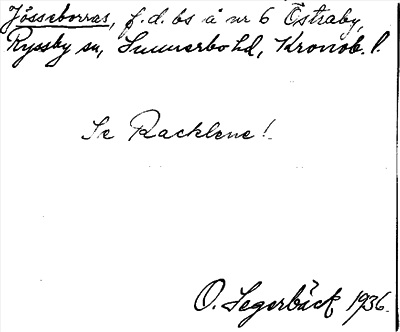 Jösseborras, f.d. bs å nr 6 Östraby,
Ryssby sn, Sunnerbo hd, Kronob. l.
Se Racklene!
O. Segerbäck 1936.